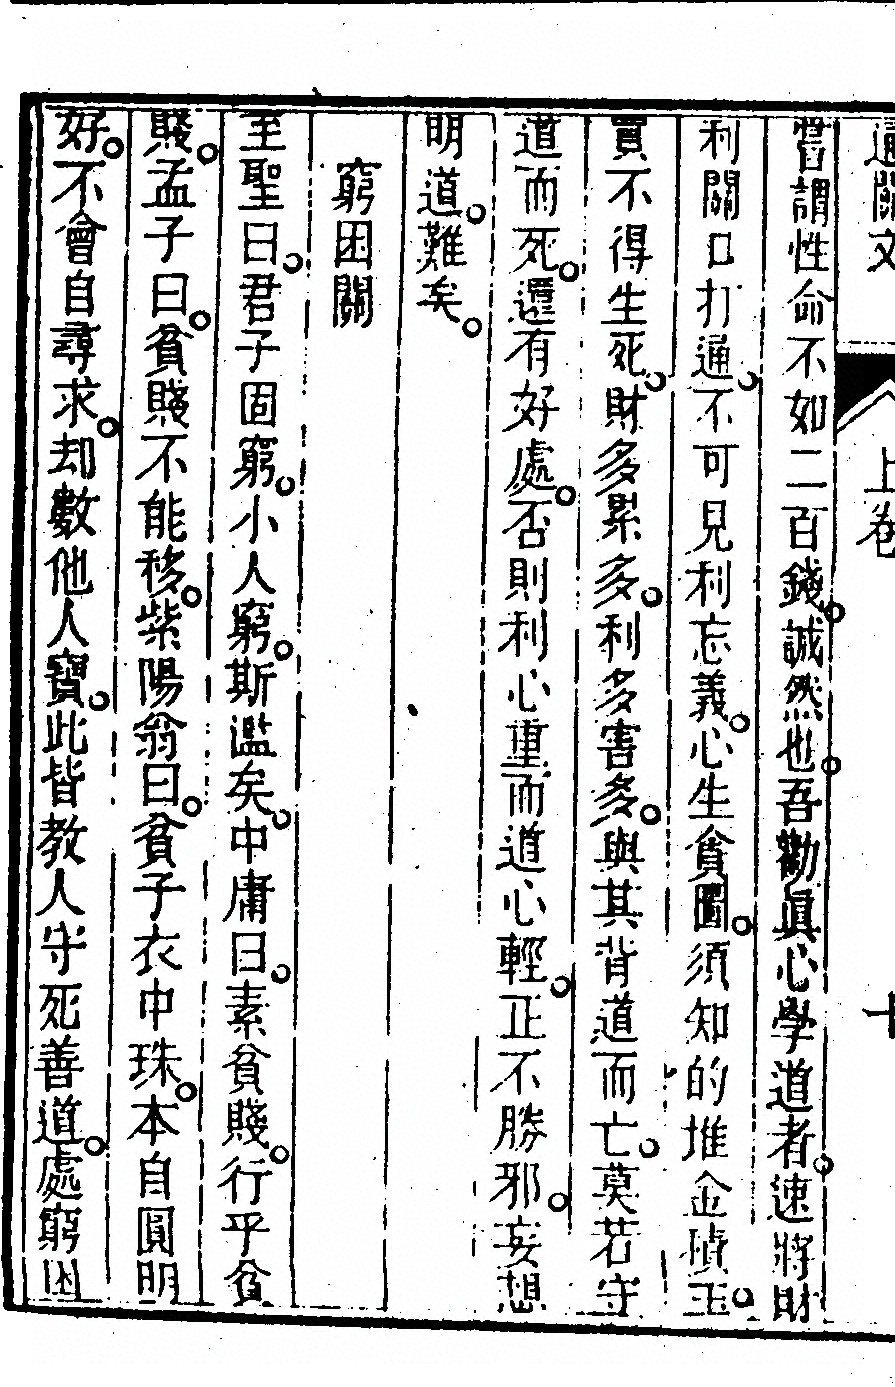 通關文
上卷
十
嘗謂性命不如二百錢誠然也吾勸眞心學道者速將財
利關口打通不可見利忘義心生貪圖須知的堆金積玉
買不得生死財多累多利多害多與其背道而亡莫若守
道而死還有好處否則利心重而道心輕正不勝邪妄想
明道難矣
窮困關
至聖曰君子固窮小人窮斯濫矣中庸曰素貧賤行乎貧
賤孟子曰貧賤不能移紫陽翁曰貧子衣中珠本自圓明
好不會自尋求却數他人寶此皆教人守死善道處窮困